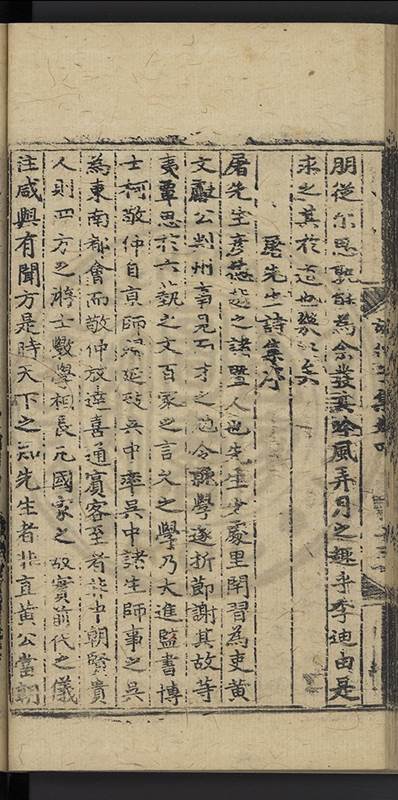 朋從尔思孰能為余發其吟風弄月之趣乎李迪由是
求之其於道也幾矣
屠先生詩集序
屠先生彥德越之諸暨人也先生少處里閈習為吏黃
文獻公判州事見而才之令縣學遂折節謝其故等
夷覃思於六藝之文百家之言久之學乃大進監書博
士柯敬仲自京師歸延致吳中率吳中諸生師事之吳
為東南都會而敬仲放達喜通賓客至者非中朝賢貴
人則四方之橋士數學相長凡國家之故實前代之儀
注咸與有聞方是時天下之知先生者非直黃公當朝